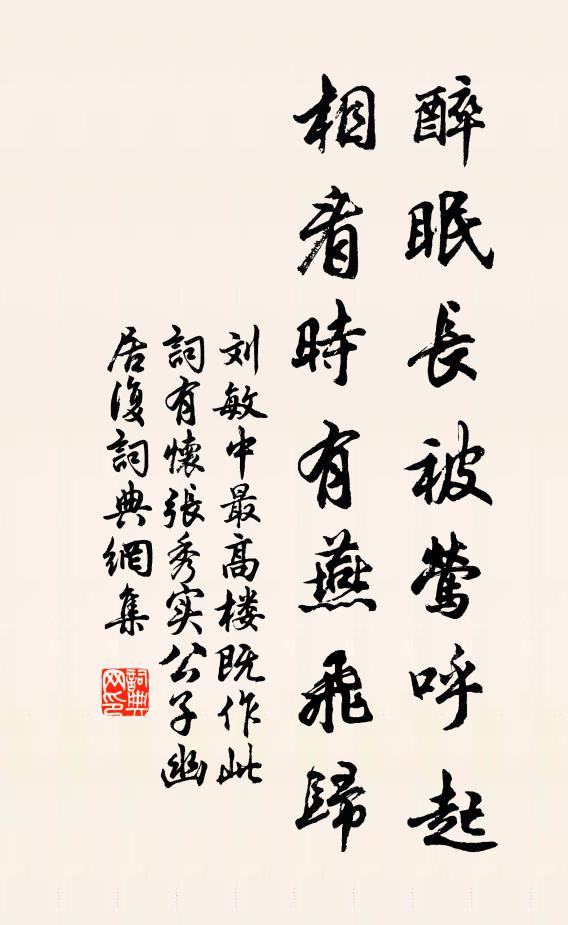 醉眠長被鶯呼起
相看時有燕飛歸
刘敏中最高楼既作此
詞有懷張秀实公子幽
居復詞典網集
詞典网印